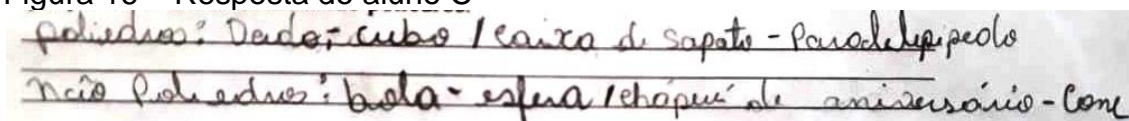 Figura 10 – Resposta do aluno C
poliedros: Dado-cubo / caixa de sapato - Paralelepipedo
não Poliedros: bola - esfera / chápeu de aniversário - Cone